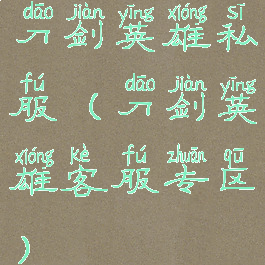 dāo jiàn yīng xióng sī
刀剑英雄私
fú dāo jiàn yīng
服(刀剑英
xióng kè fú zhuān qū
雄客服专区
)